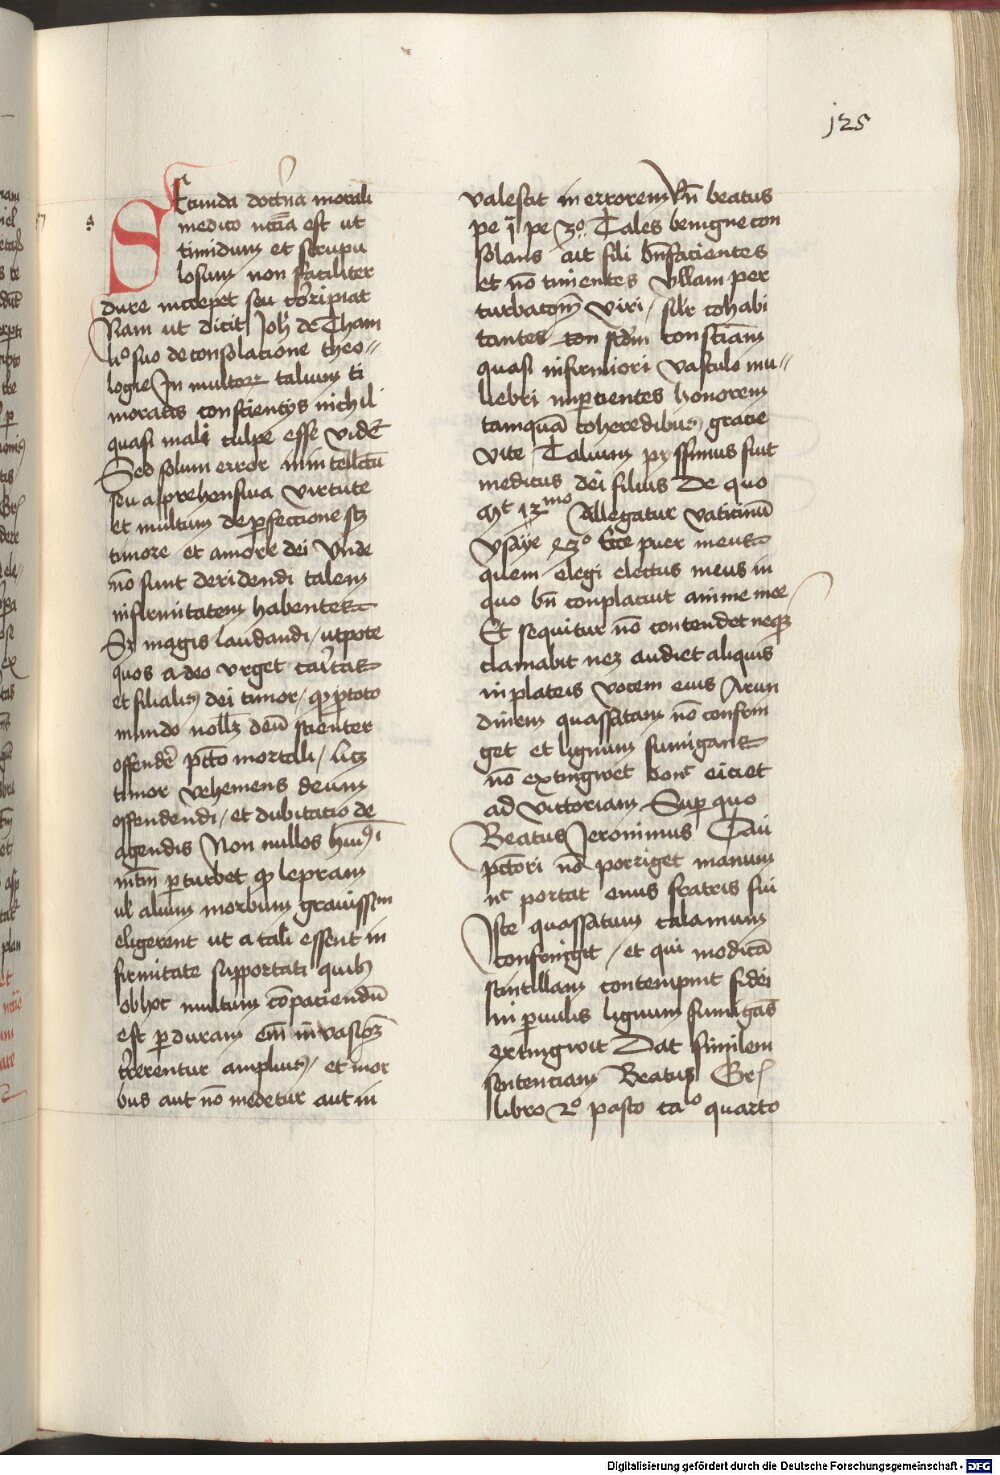 125
SEcunda doctrīa morali
medico nccīa est ut
timidum et scrupu
losum non faciliter
dure increpet seu corripiat
Nam ut dicit Joh̄ de Tham
liº suo de consolacione theo//
logie In multorꝝ talium ti
moratis conscientijs nichil
quasi mali culpe esse videt̄
Sed solum error in intellectū
seu apprehensiua virtute
et multum de ꝑfeccione scꝫ
timore et amore dei Vnde
nō sunt deridendi talem
infirmitatem habentes
Sꝫ magis laudandi / utpote
quos adeo vrget caritas
et filialis dei timor / qđ ꝓ toto
mundo nollꝫ deū scienter
offendē pctō mortali / licꝫ
timor vehemens deum
offendendi / et dubitacio de
agendis Non nullos
intm̄ ꝑturbet qđ lepram
ul̄ alium morbum grauissim
eligerent ut a tali essent in
firmitate supportati quibꝫ
ob hoc multum cōpaciendū
est ꝑ duram em̄ inuasiōꝫ
terrerentur amplius / et mor
bus aut nō medetur aut in
valescit in errorem Vn̄ beatus
pe j pe 3º Tales benigne con
solans ait fili bn̄facientes
et nō timentes vllam per
turbacōm viri / silr cohabi
tantes scdm consciam
quasi infirmiori vasculo mu//
liebri impercientes honorem
tamquā coheredibus gracie
vite Talium pyssimus fiut
medicus dei filius De quo
Mt 12mo Allegatur vaticinū
ysaye 42º Ecce puer meus
quem elegi electus meus in
quo bn̄ conplacuit anime mee
Et sequitur nō contendet neqꝫ
clamabit neqꝫ audiet aliquis
in plateis vocem eius Arun
dinem quassatam nō confrin
get et lignum fumigans
nō extingwet donc̄ eiciet
ad victoriam Super quo
Beatus Jeronimus Qui
pctōri nō porriget manum
nc̄ portat onus fratris sui
Iste quassatum calamum
confringit / et qui modicā
scintillam contempnit fidei
in ꝑuulis lignum fumigās
extingwit Dat similem
sentenciam Beatus Gre
libro 2º pasto caº quarto
Digitalisierung gefördert durch die Deutsche Forschungsgemeinschaft - DFG